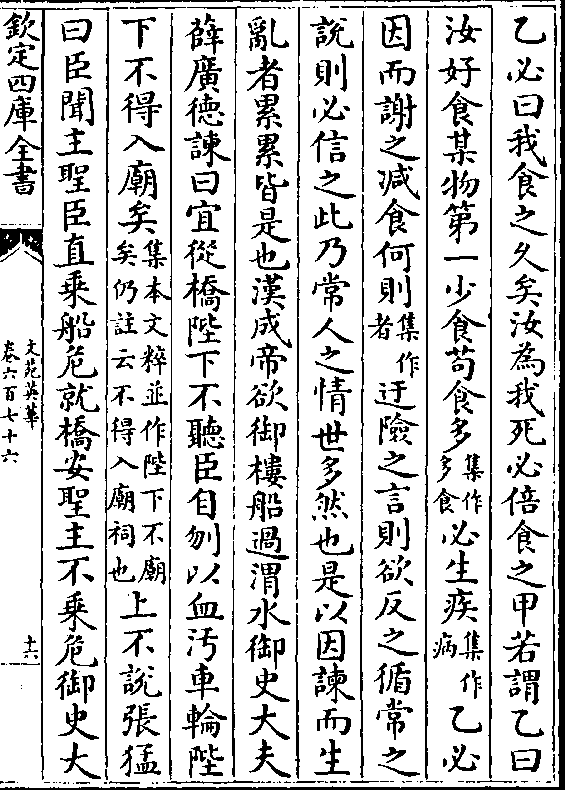 乙必曰我食之久矣汝為我死必倍食之甲若謂乙曰
汝好食某物第一少食苟食多集作多食必生疾集作病乙必
因而謝之減食何則集作者迂險之言則欲反之循常之
說則必信之此乃常人之情世多然也是以因諫而生
亂者累累皆是也漢成帝欲御樓船過渭水御史大夫
薛廣德諫曰宜從橋陛下不聽臣自刎以血汚車輪陛
下不得入廟矣集本文粹並作陛下不廟矣仍註云不得入廟祠也上不說張猛
曰臣聞主聖臣直乘船危就橋安聖主不乘危御史大
欽定四庫全書
文苑英華
卷六百七十六
十六